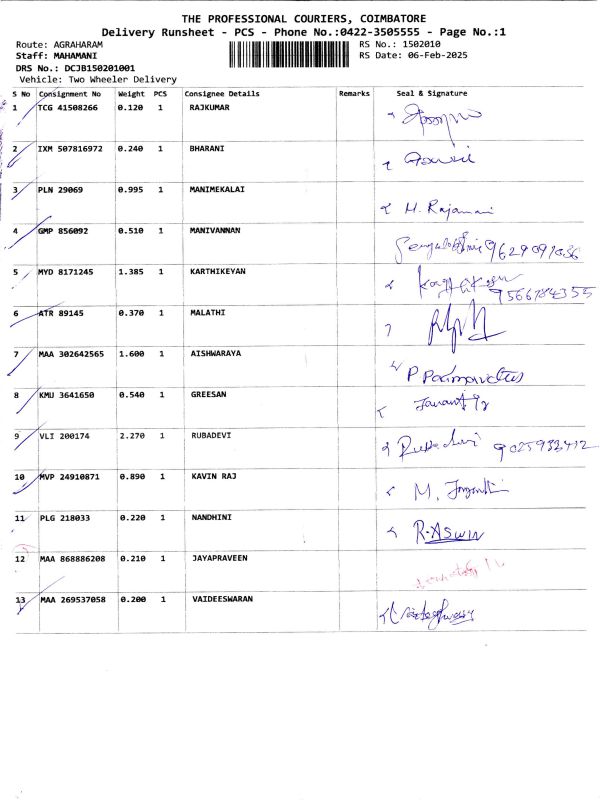 THE PROFESSIONAL COURIERS, COIMBATORE
Delivery Runsheet - PCS - Phone No.:0422-3505555 - Page No.:1
Route: AGRAHARAM RS No.: 1502010
Staff: MAHAMANI RS Date: 06-Feb-2025
DRS No.: DCJB150201001
Vehicle: Two Wheeler Delivery
S No Consignment No Weight PCS Consignee Details Remarks Seal & Signature
1 TCG 41508266 0.120 1 RAJKUMAR
2 IXM 507816972 0.240 1 BHARANI
3 PLN 29069 0.995 1 MANIMEKALAI M. Rajamani
4 GMP 856092 0.510 1 MANIVANNAN
5 MYD 8171245 1.385 1 KARTHIKEYAN 9566784355
6 ATR 89145 0.370 1 MALATHI
7 MAA 302642565 1.600 1 AISHWARAYA
8 KMU 3641650 0.540 1 GREESAN
9 VLI 200174 2.270 1 RUBADEVI 9025933412
10 MVP 24910871 0.890 1 KAVIN RAJ
11 PLG 218033 0.220 1 NANDHINI R.ASWIN
12 MAA 868886208 0.210 1 JAYAPRAVEEN
13 MAA 269537058 0.200 1 VAIDEESWARAN